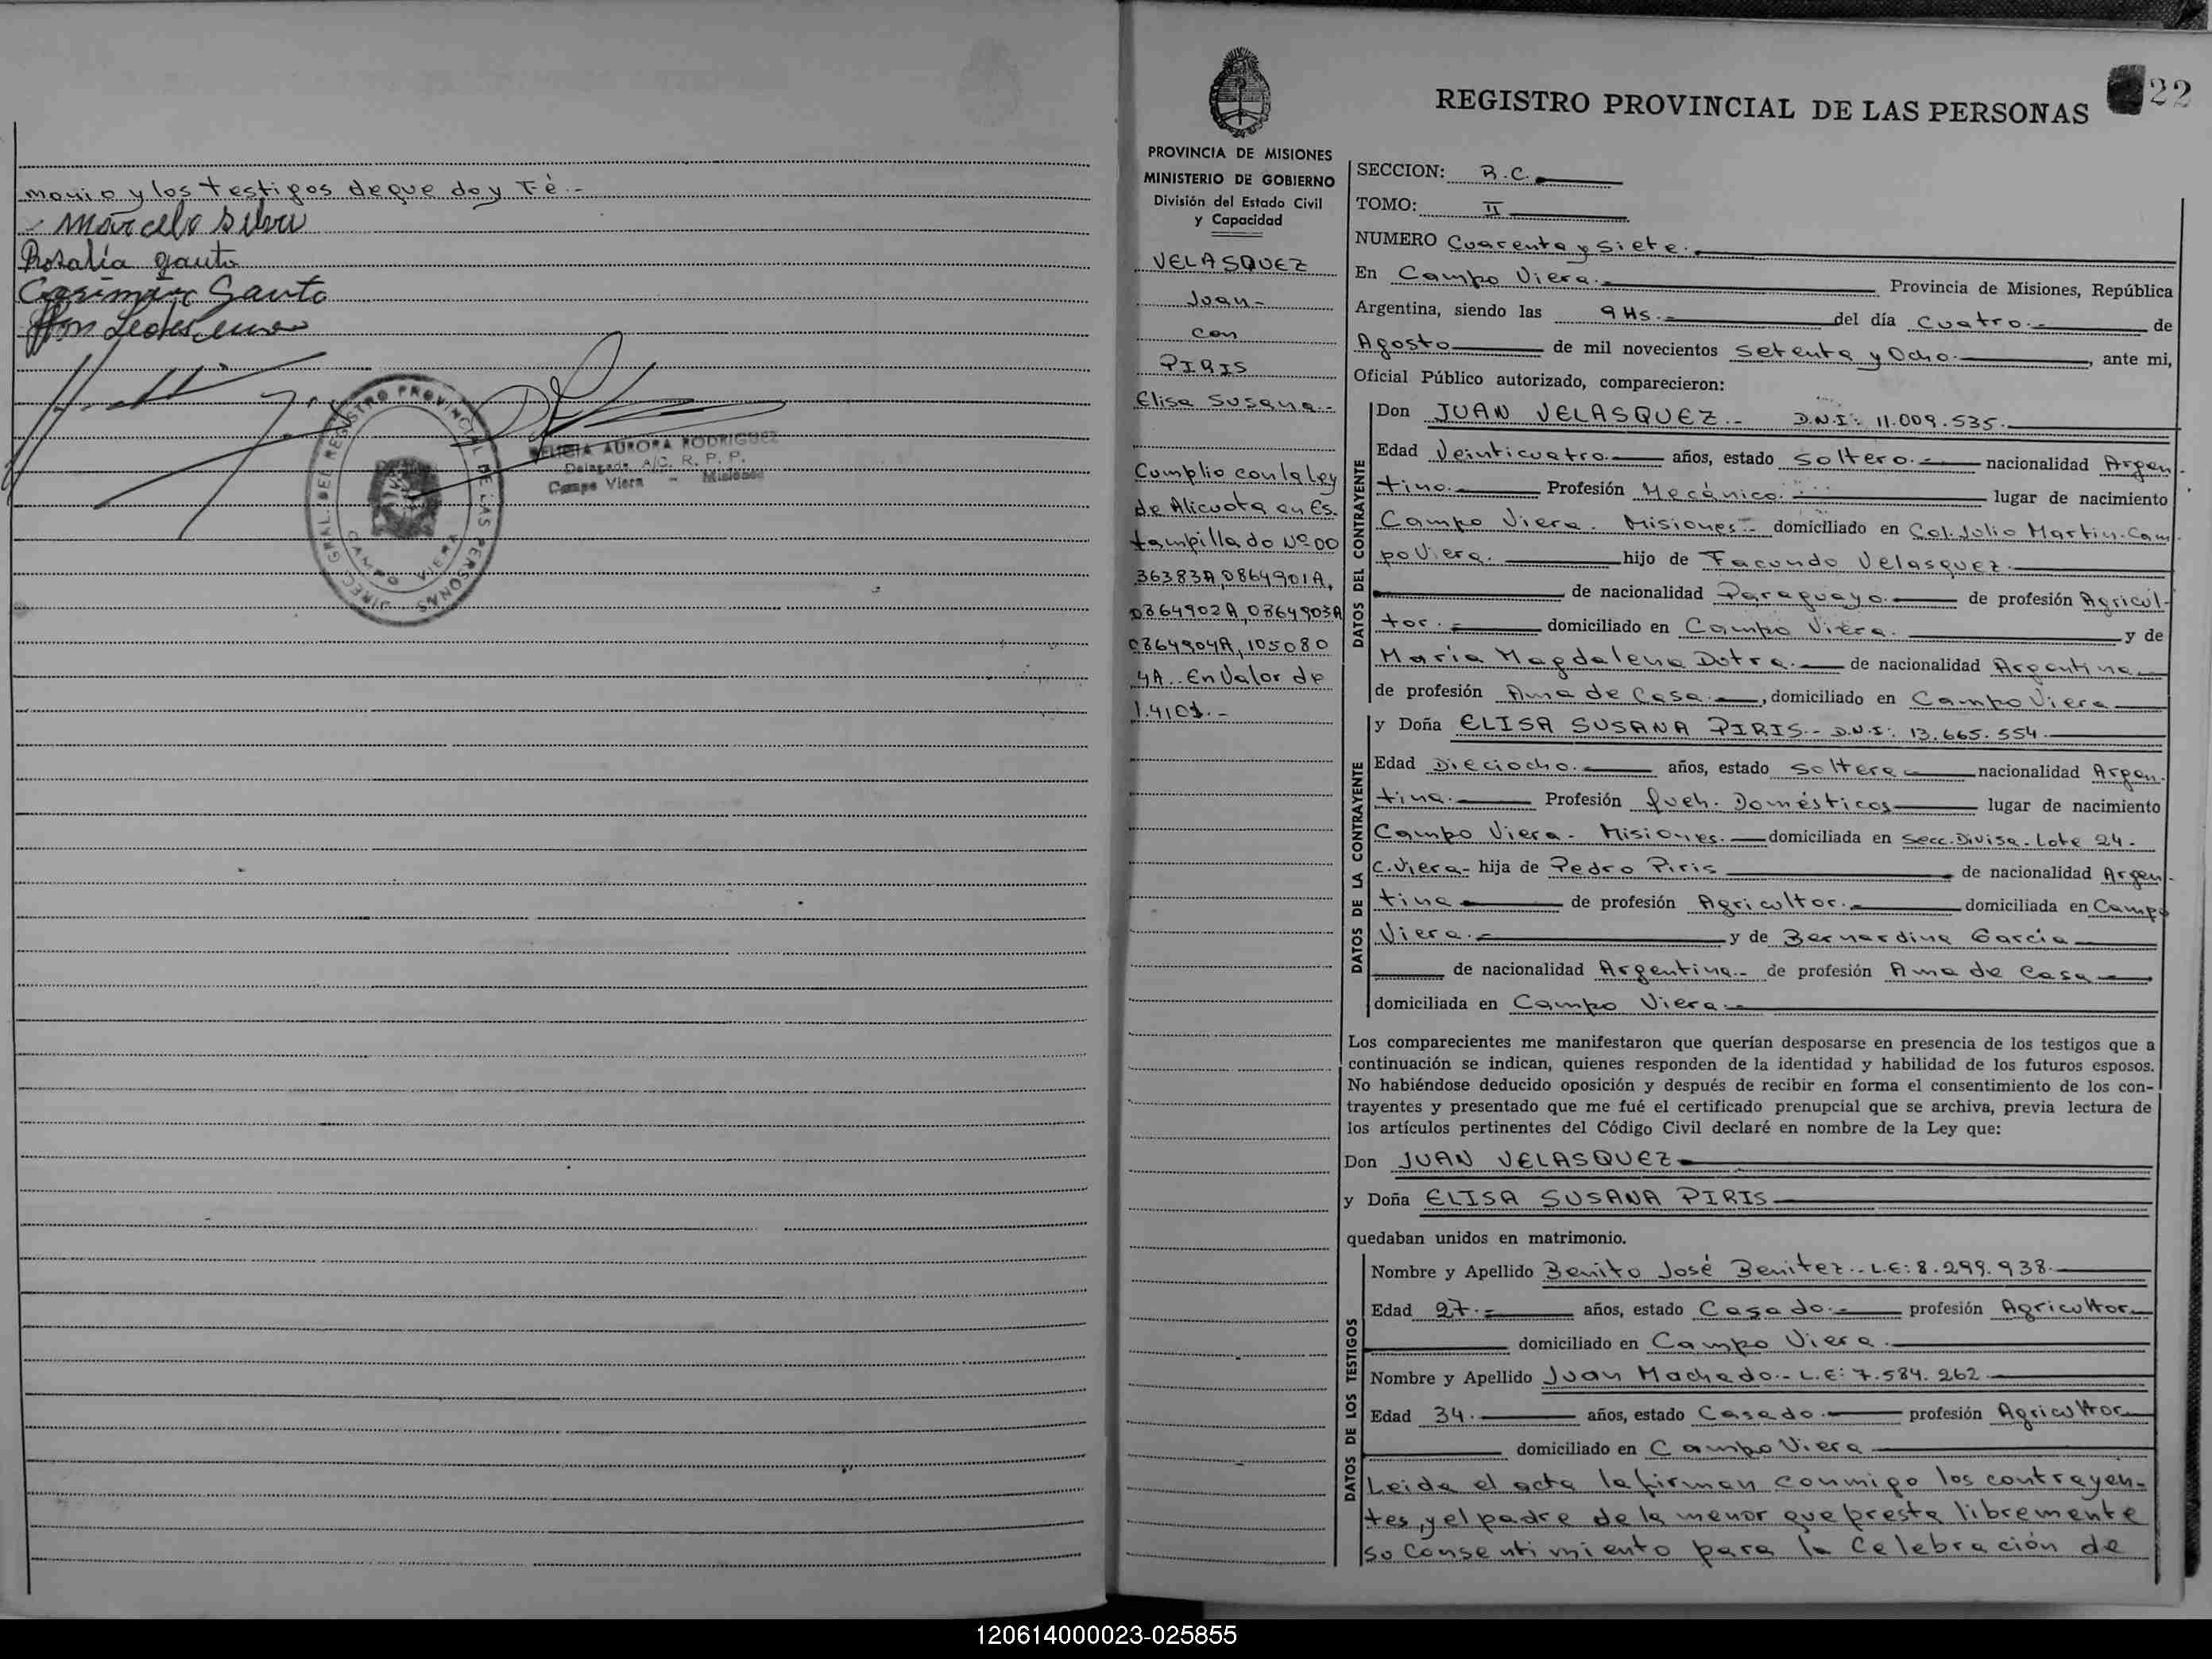 monio y los testigos de que doy Fé.-
Marcelo Silva
Rosalía Gauto
Casimiro Gauto
DIRECC. GRAL. DEL REGISTRO PROVINCIAL DE LAS PERSONAS
CAMPO VIERA
FELICIA AURORA RODRIGUEZ
Delegada A/C. R. P. P.
Campo Viera - Misiones
22
REGISTRO PROVINCIAL DE LAS PERSONAS
PROVINCIA DE MISIONES
MINISTERIO DE GOBIERNO
División del Estado Civil
y Capacidad
VELASQUEZ
Juan-
con
PIRIS
Elisa Susana.-
Cumplio con la ley
de Alicuota en Es.
tampillado Nº 00
36383A, 0864901A,
0864902A, 0864903A
0864904A, 105080
4A.. En Valor de
1.410$.-
SECCION: R.C.
TOMO: II
NUMERO Cuarenta y Siete.
En Campo Viera. Provincia de Misiones, República
Argentina, siendo las 9 Hs.- del día Cuatro.- de
Agosto de mil novecientos setenta y Ocho.- , ante mi,
Oficial Público autorizado, comparecieron:
DATOS DEL CONTRAYENTE
Don JUAN VELASQUEZ.- D.N.I: 11.009.535.
Edad Veinticuatro. años, estado soltero.- nacionalidad Argen-
tino. Profesión Mecánico. lugar de nacimiento
Campo Viera. Misiones- domiciliado en Col. Julio Martin. Cam
po Viera. hijo de Facundo Velasquez.
de nacionalidad Paraguayo. de profesión Agricul-
tor.- domiciliado en Campo Viera. y de
Maria Magdalena Dotra.- de nacionalidad Argentina
de profesión Ama de Casa. , domiciliado en Campo Viera
DATOS DE LA CONTRAYENTE
y Doña ELISA SUSANA PIRIS.- D.N.I: 13.665.554
Edad Dieciocho. años, estado soltera nacionalidad Argen.
tina. Profesión Queh. Domésticos lugar de nacimiento
Campo Viera- Misiones. domiciliada en Secc. Divisa. Lote 24.-
C. Viera- hija de Pedro Piris de nacionalidad Argen-
tina de profesión Agricultor. domiciliada en Campo
Viera.- y de Bernardina Garcia
de nacionalidad Argentina.- de profesión Ama de Casa
domiciliada en Campo Viera.-
Los comparecientes me manifestaron que querían desposarse en presencia de los testigos que a
continuación se indican, quienes responden de la identidad y habilidad de los futuros esposos.
No habiéndose deducido oposición y después de recibir en forma el consentimiento de los con-
trayentes y presentado que me fué el certificado prenupcial que se archiva, previa lectura de
los artículos pertinentes del Código Civil declaré en nombre de la Ley que:
Don JUAN VELASQUEZ
y Doña ELISA SUSANA PIRIS
quedaban unidos en matrimonio.
DATOS DE LOS TESTIGOS
Nombre y Apellido Benito José Benitez.- L.E: 8.299.938.
Edad 27.- años, estado Casado.- profesión Agricultor
domiciliado en Campo Viera.
Nombre y Apellido Juan Machado.- L.E: 7.584.262
Edad 34. años, estado Casado. profesión Agricultor
domiciliado en Campo Viera
Leida el acta la firman conmigo los contrayen-
tes, y el padre de la menor que presta libremente
su Consentimiento para la Celebración de
120614000023-025855